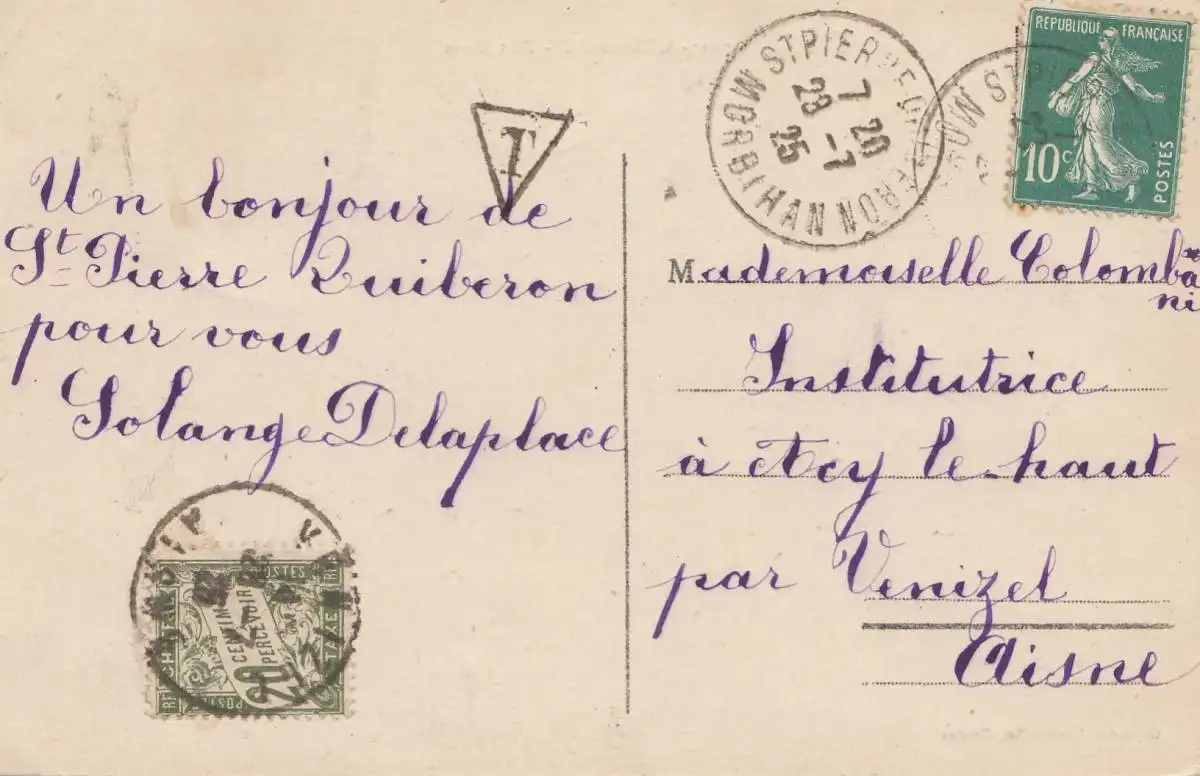 Un bonjour de
St Pierre Quiberon
pour vous
Solange Delaplace
T
ST PIERRE QUIBERON
MORBIHAN
7 20
23 -7
25
REPUBLIQUE FRANÇAISE
10c
POSTES
Mademoiselle Colomba
ni
Institutrice
à Acy le-haut
par Venizel
Aisne
POSTES
RF
CHIFFRE
TAXE
20
CENTIMES
PERCEVOIR
POSTES
RF